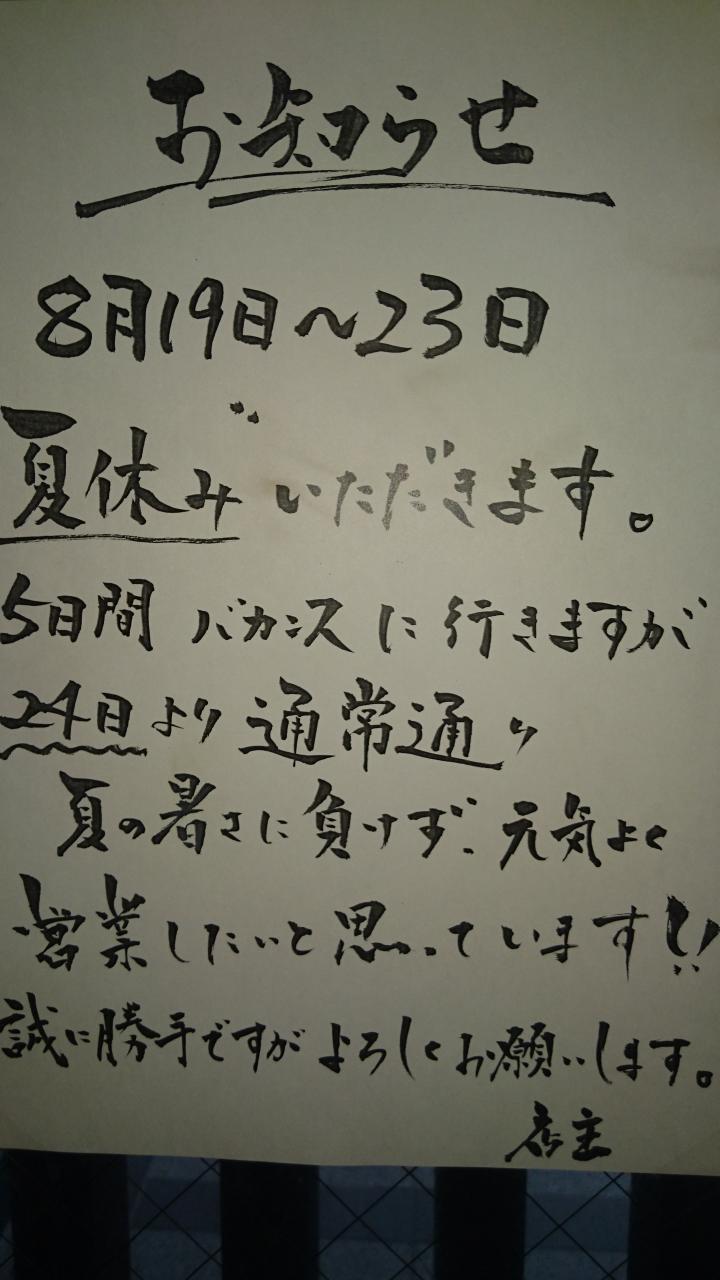 お知らせ
8月19日～23日
夏休みいただきます。
5日間 バカンスに行きますが
24日より 通常通り
夏の暑さに負けず、元気よく
営業したいと思っています!!
誠に勝手ですがよろしくお願いします。
店主